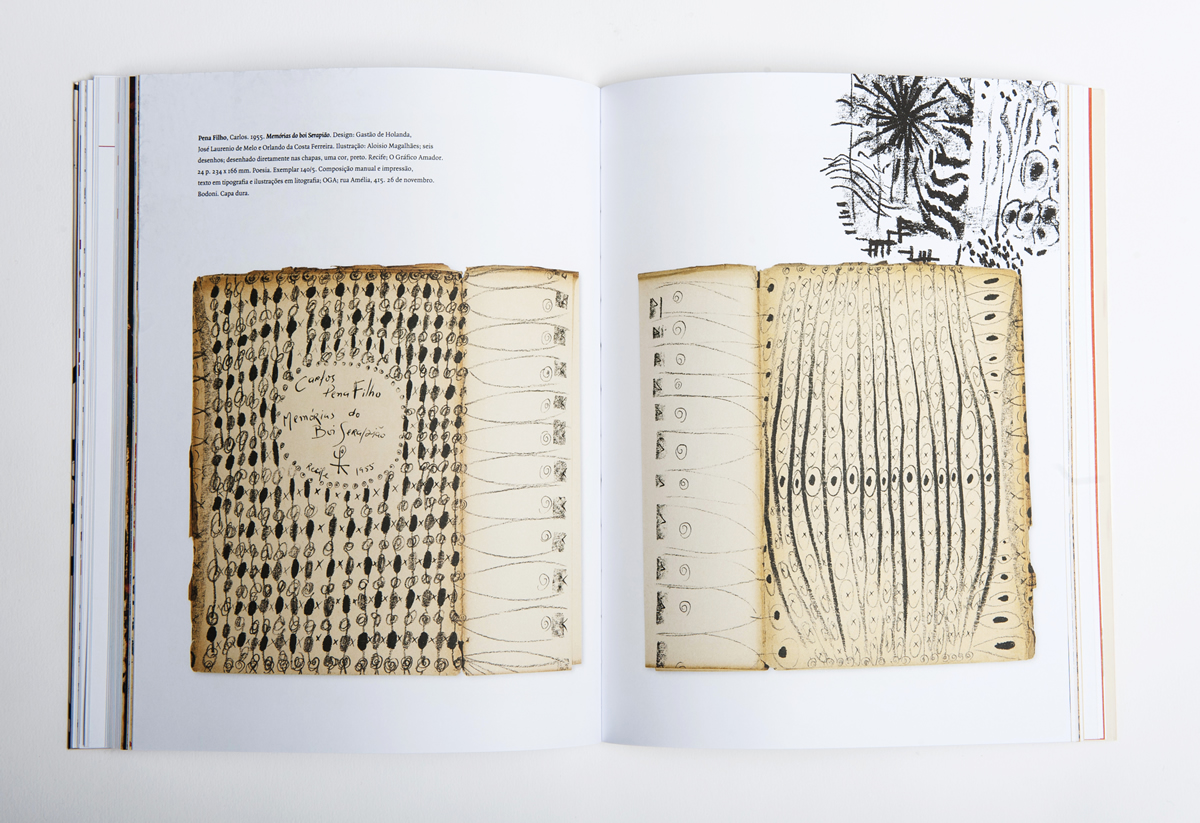 Pena Filho, Carlos. 1955. Memórias do boi Serapião. Design: Gastão de Holanda,
José Laurenio de Melo e Orlando da Costa Ferreira. Ilustração: Aloisio Magalhães; seis
desenhos; desenhado diretamente nas chapas, uma cor, preto. Recife; O Gráfico Amador.
24 p. 234 x 166 mm. Poesia. Exemplar 140/5. Composição manual e impressão,
texto em tipografia e ilustrações em litografia; OGA; rua Amélia, 415. 26 de novembro.
Bodoni. Capa dura.
Carlos
Pena Filho
Memórias do
Boi Serapião
Recife 1955